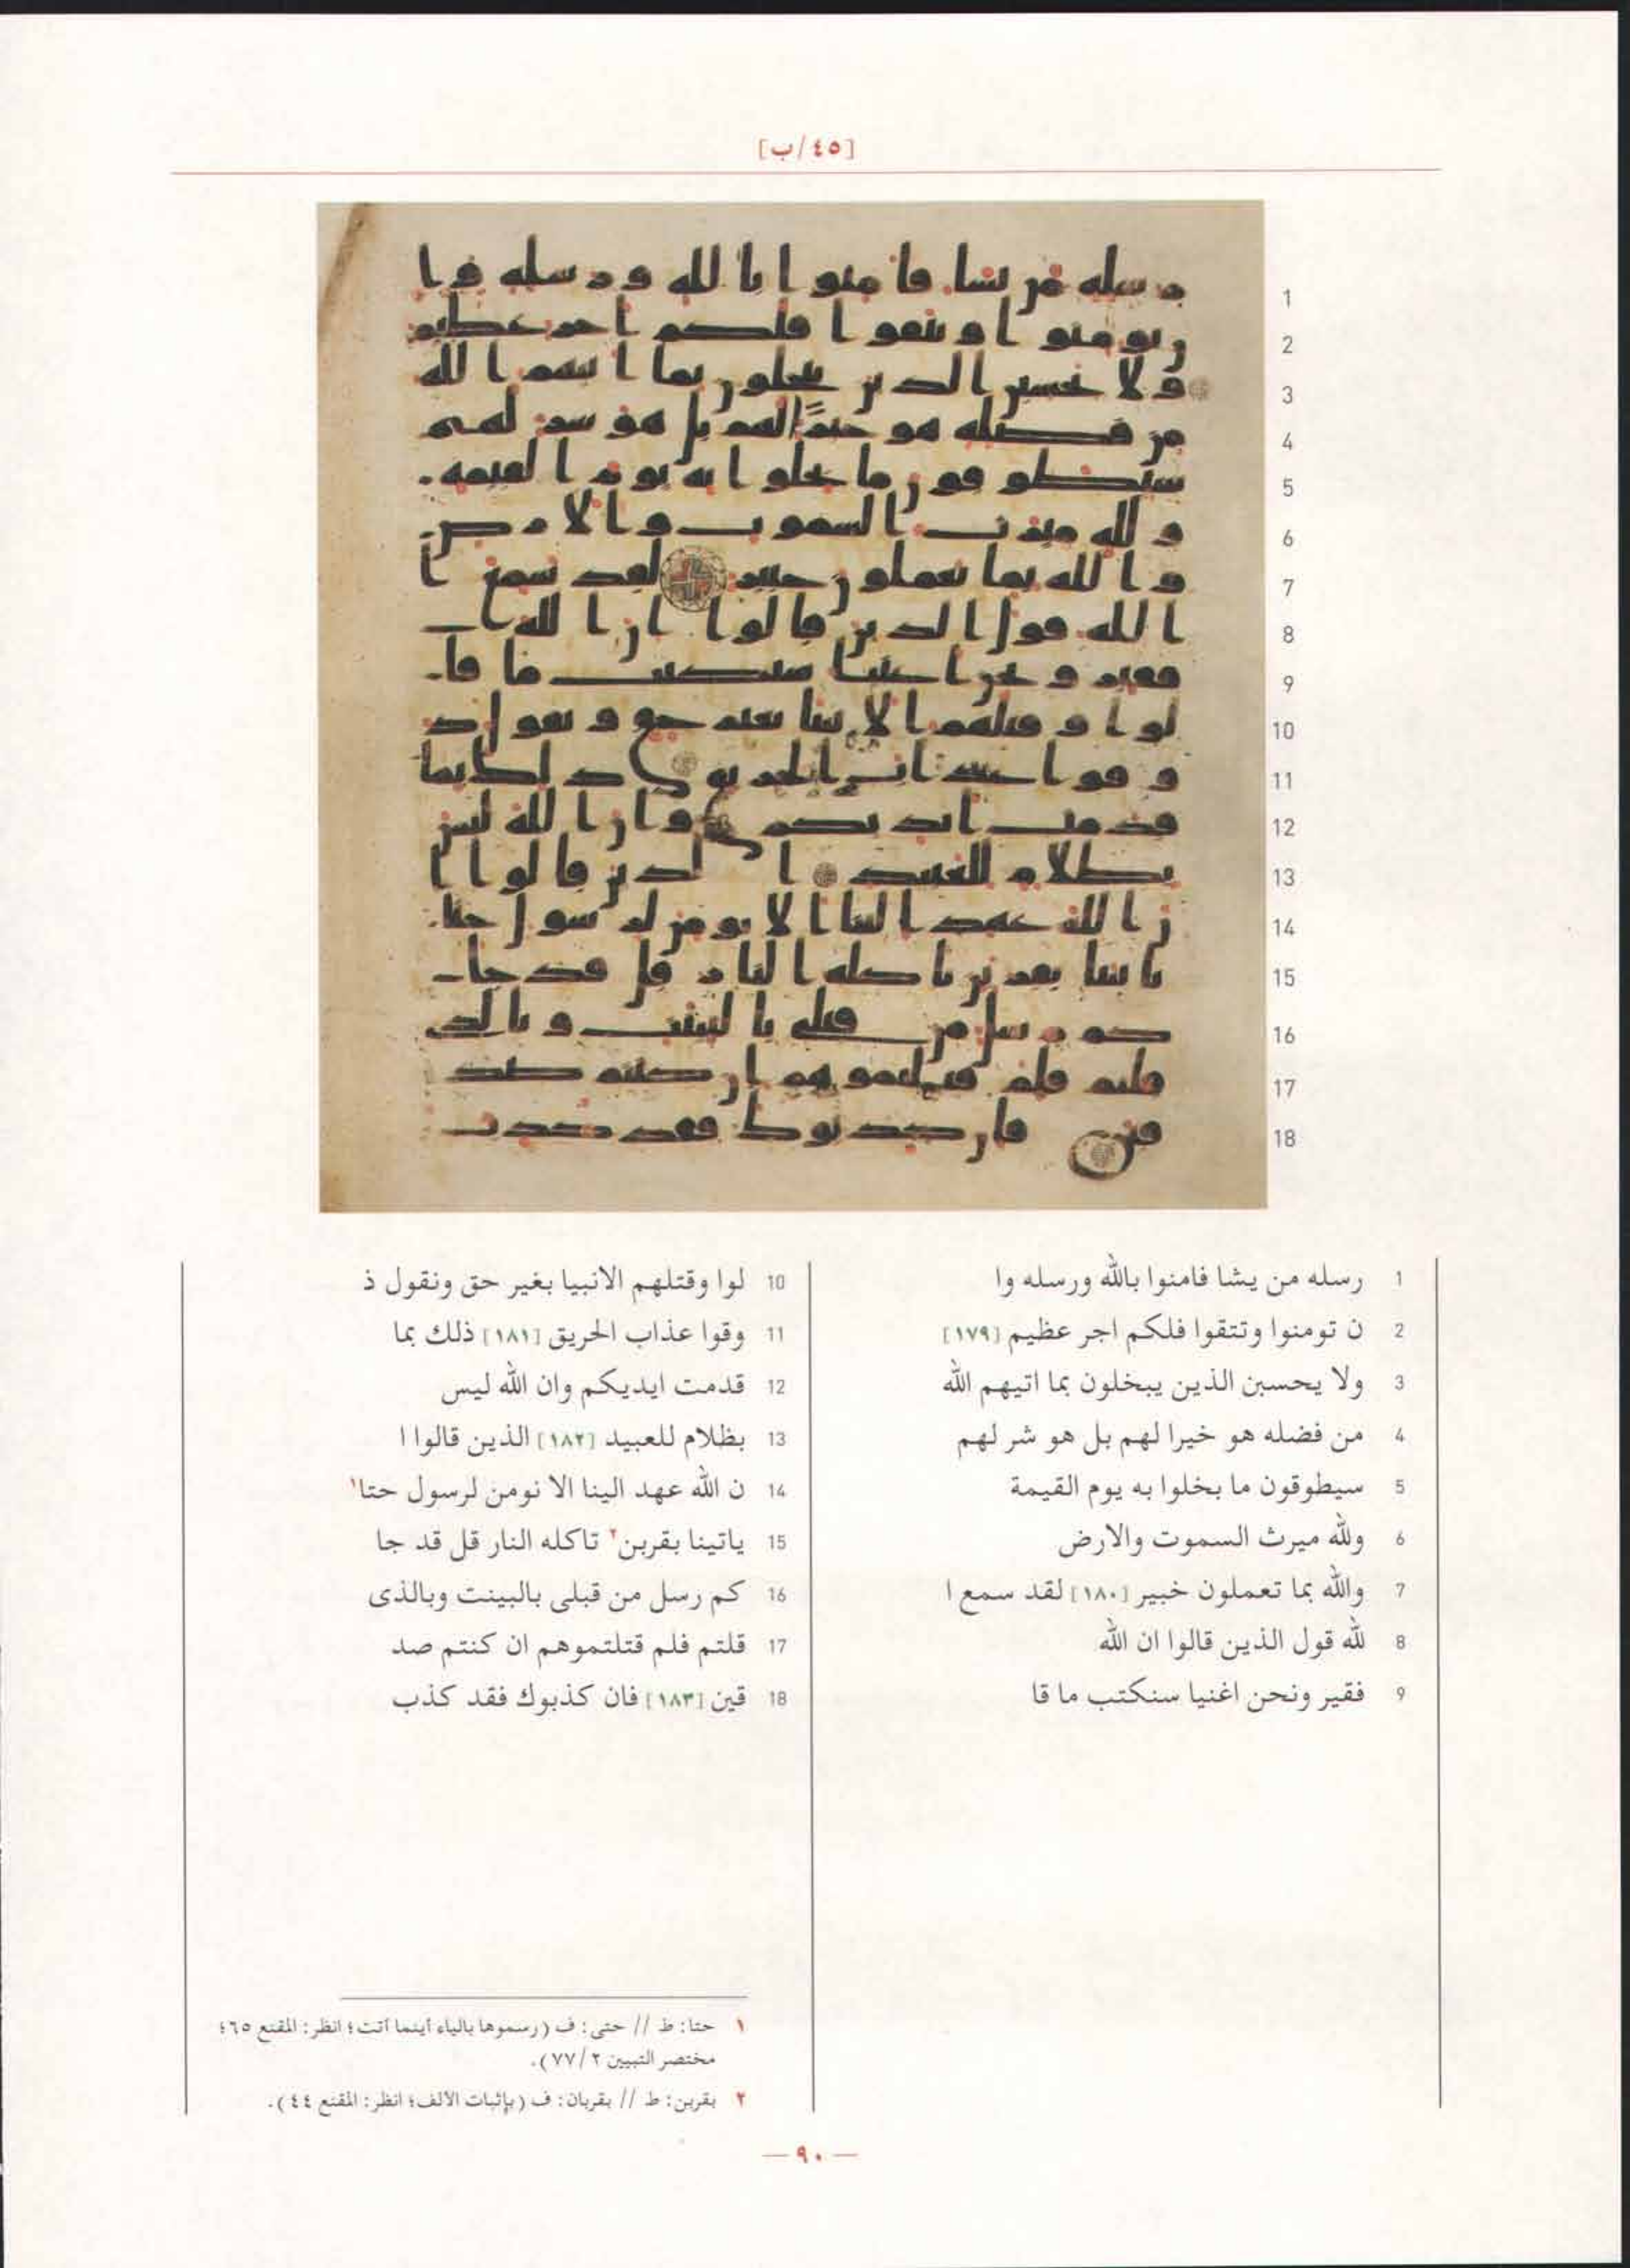 [٤٥/ب]
1 رسله من يشا فامنوا بالله ورسله وا
2 ن تومنوا وتتقوا فلكم اجر عظيم [١٧٩]
3 ولا يحسبن الذين يبخلون بما اتيهم الله
4 من فضله هو خيرا لهم بل هو شر لهم
5 سيطوقون ما بخلوا به يوم القيمة
6 ولله ميرث السموت والارض
7 والله بما تعملون خبير [١٨٠] لقد سمع ا
8 لله قول الذين قالوا ان الله
9 فقير ونحن اغنيا سنكتب ما قا
10 لوا وقتلهم الانبيا بغير حق ونقول ذ
11 وقوا عذاب الحريق [١٨١] ذلك بما
12 قدمت ايديكم وان الله ليس
13 بظلام للعبيد [١٨٢] الذين قالوا ا
14 ن الله عهد الينا الا نومن لرسول حتا١
15 ياتينا بقربن٢ تاكله النار قل قد جا
16 كم رسل من قبلى بالبينت وبالذى
17 قلتم فلم قتلتموهم ان كنتم صد
18 قين [١٨٣] فان كذبوك فقد كذب
١ حتا: ط // حتى: ف (رسموها بالياء أينما أتت؛ انظر: المقنع ٦٥؛
مختصر التبيين ٢/٧٧).
٢ بقربن: ط // بقربان: ف (بإثبات الألف؛ انظر: المقنع ٤٤).
— ٩٠ —